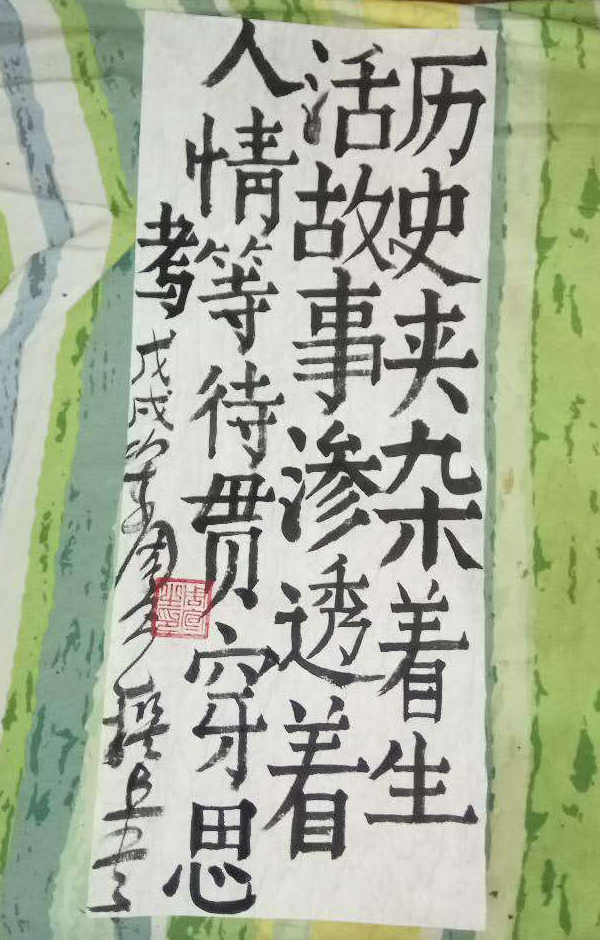 历史夹杂着生
活故事渗透着
人情等待贯穿思
考
戊戌年周
撰书